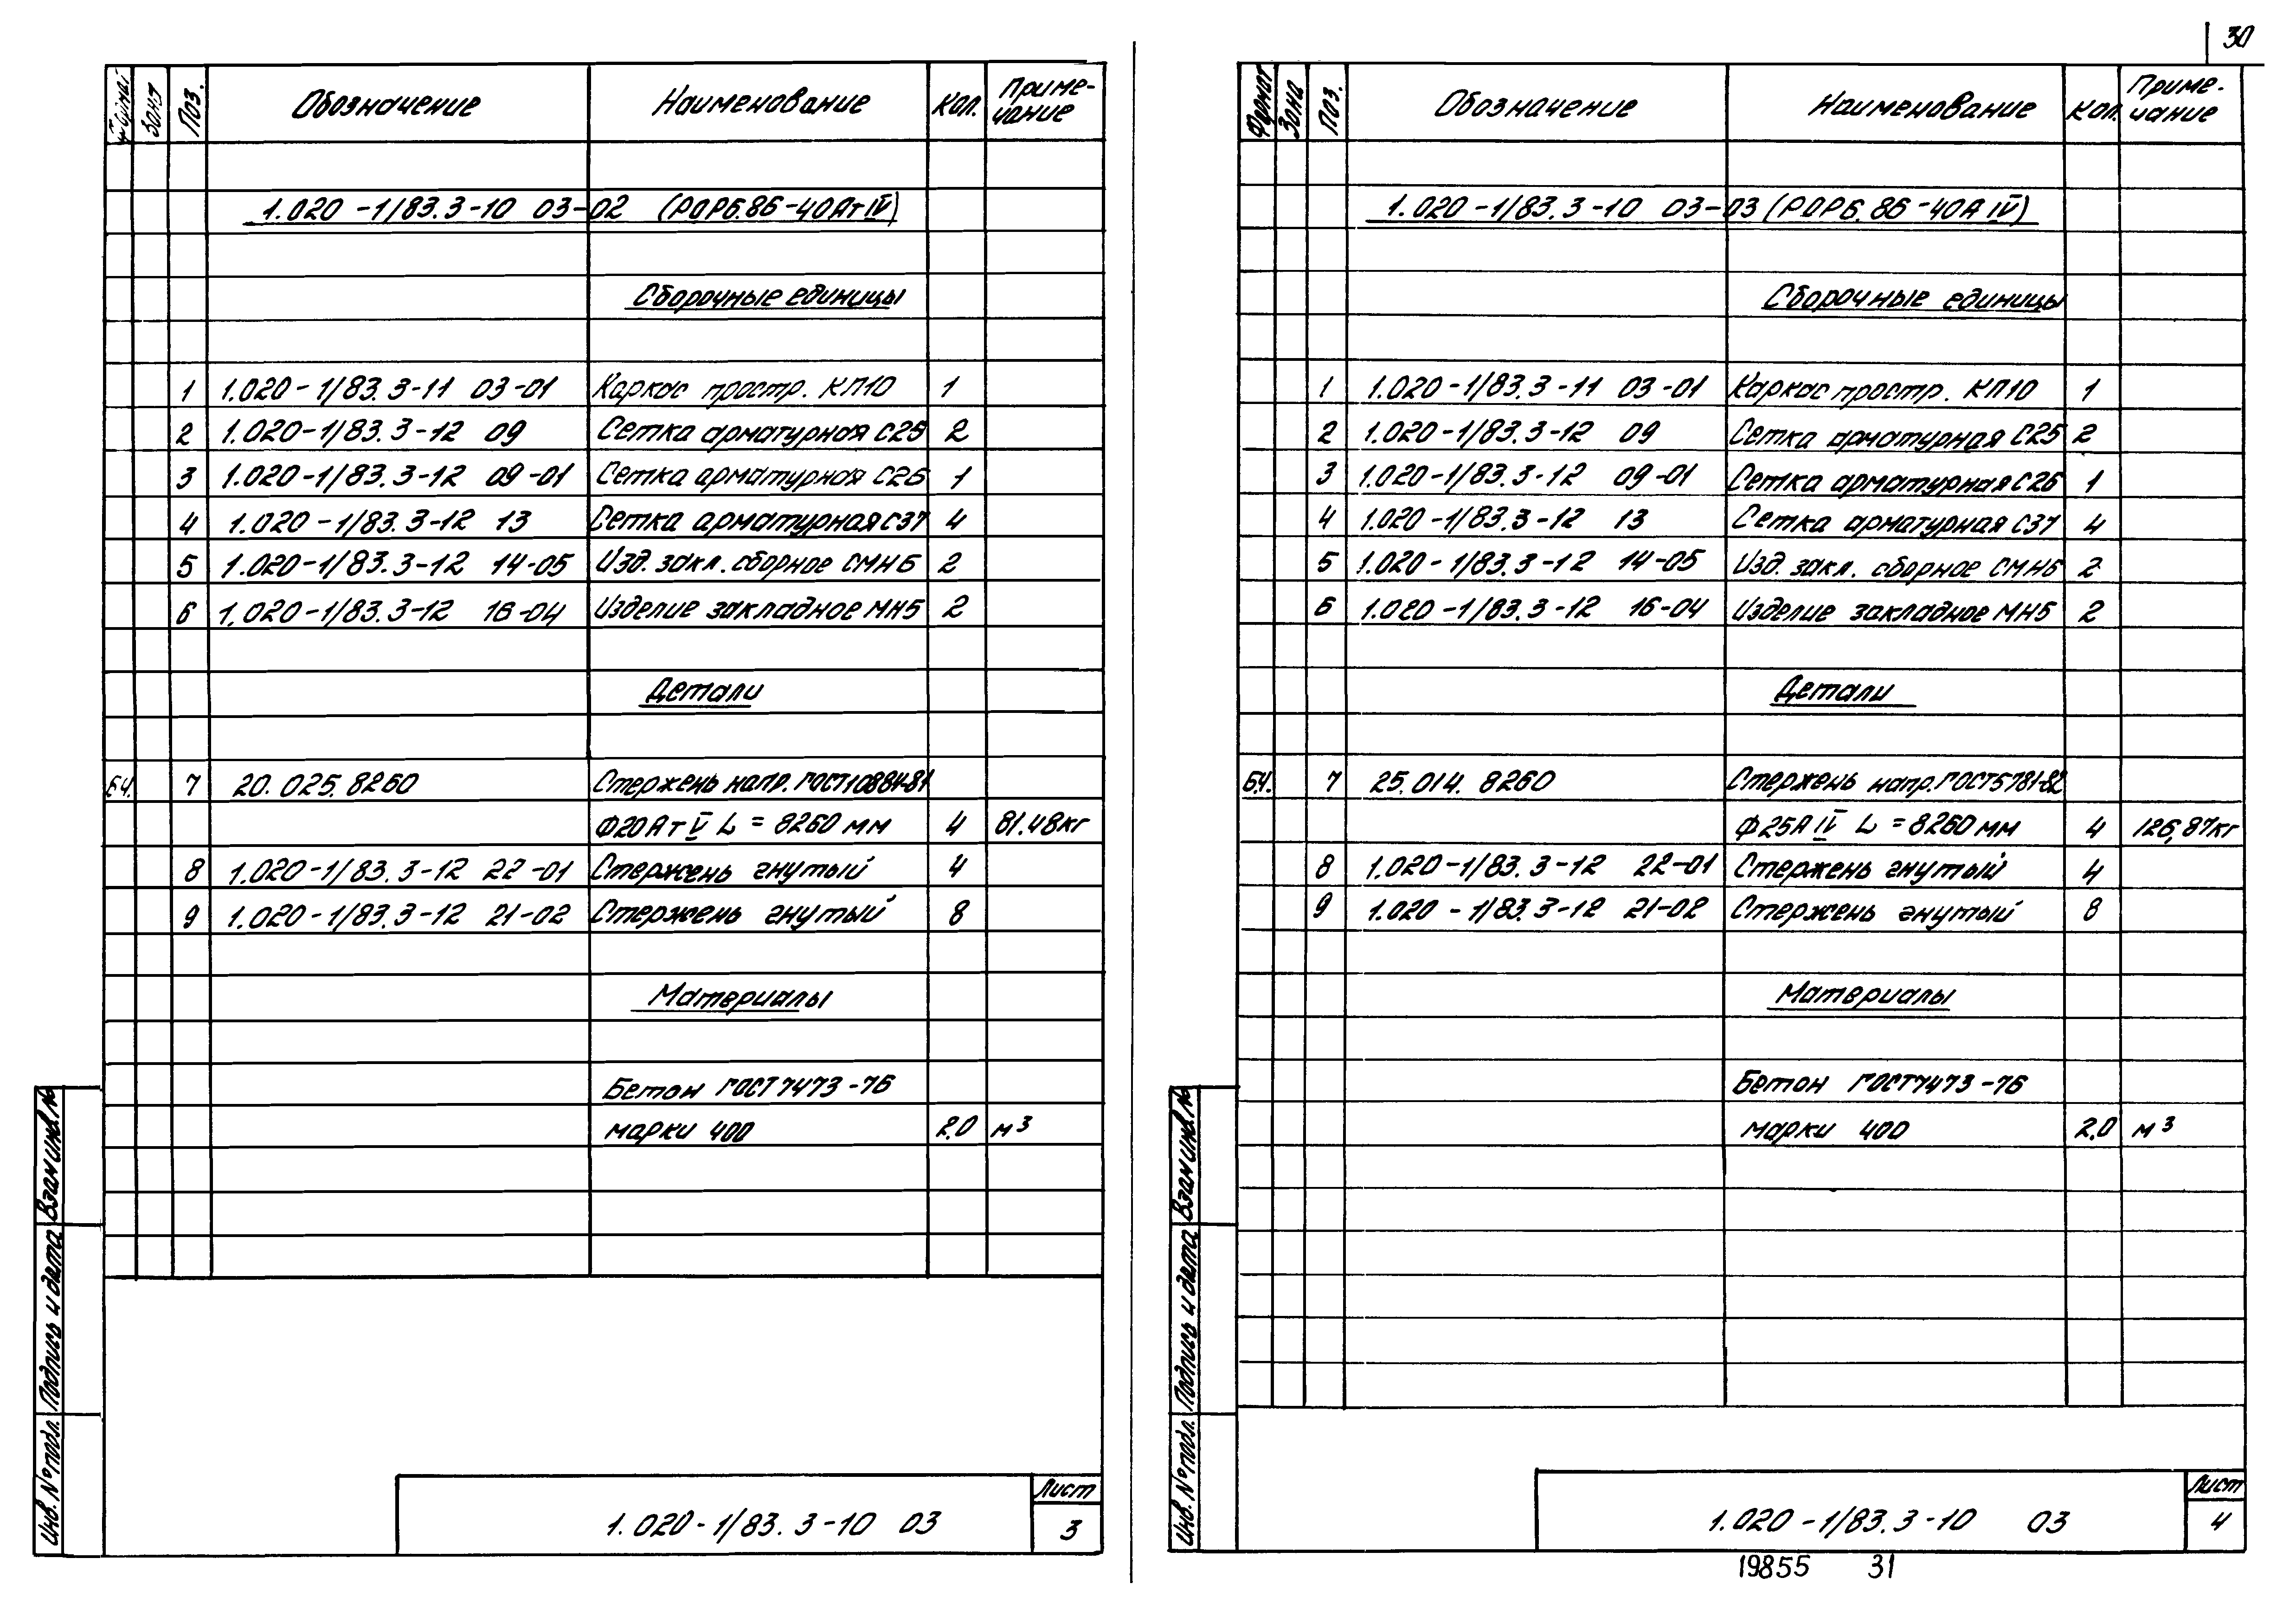 30
Формат Зона Поз. Обозначение Наименование Кол. Приме-
чание
1.020-1/83.3-10 03-02 (РОР6.86-40АтIV)
Сборочные единицы
1 1.020-1/83.3-11 03-01 Каркас простр. КП10 1
2 1.020-1/83.3-12 09 Сетка арматурная С25 2
3 1.020-1/83.3-12 09-01 Сетка арматурная С26 1
4 1.020-1/83.3-12 13 Сетка арматурная С37 4
5 1.020-1/83.3-12 14-05 Изд. закл. сборное СМН6 2
6 1.020-1/83.3-12 16-04 Изделие закладное МН5 2
Детали
БЧ. 7 20.025.8260 Стержень напр. ГОСТ10884-81
Ф20АтV L = 8260 мм 4 81.48кг
8 1.020-1/83.3-12 22-01 Стержень гнутый 4
9 1.020-1/83.3-12 21-02 Стержень гнутый 8
Материалы
Бетон ГОСТ7473-76
марки 400 2,0 м³
Взам инв.№
Подпись и дата
Инв. № подл.
1.020-1/83.3-10 03
Лист
3
Формат Зона Поз. Обозначение Наименование Кол. Приме-
чание
1.020-1/83.3-10 03-03 (РОР6.86-40АIV)
Сборочные единицы
1 1.020-1/83.3-11 03-01 Каркас простр. КП10 1
2 1.020-1/83.3-12 09 Сетка арматурная С25 2
3 1.020-1/83.3-12 09-01 Сетка арматурная С26 1
4 1.020-1/83.3-12 13 Сетка арматурная С37 4
5 1.020-1/83.3-12 14-05 Изд. закл. сборное СМН6 2
6 1.020-1/83.3-12 16-04 Изделие закладное МН5 2
Детали
БЧ. 7 25.014.8260 Стержень напр. ГОСТ5781-82
Ф25АIV L = 8260 мм 4 126,87кг
8 1.020-1/83.3-12 22-01 Стержень гнутый 4
9 1.020-1/83.3-12 21-02 Стержень гнутый 8
Материалы
Бетон ГОСТ7473-76
марки 400 2,0 м³
Взам инв.№
Подпись и дата
Инв. № подл.
1.020-1/83.3-10 03
Лист
4
19855 31